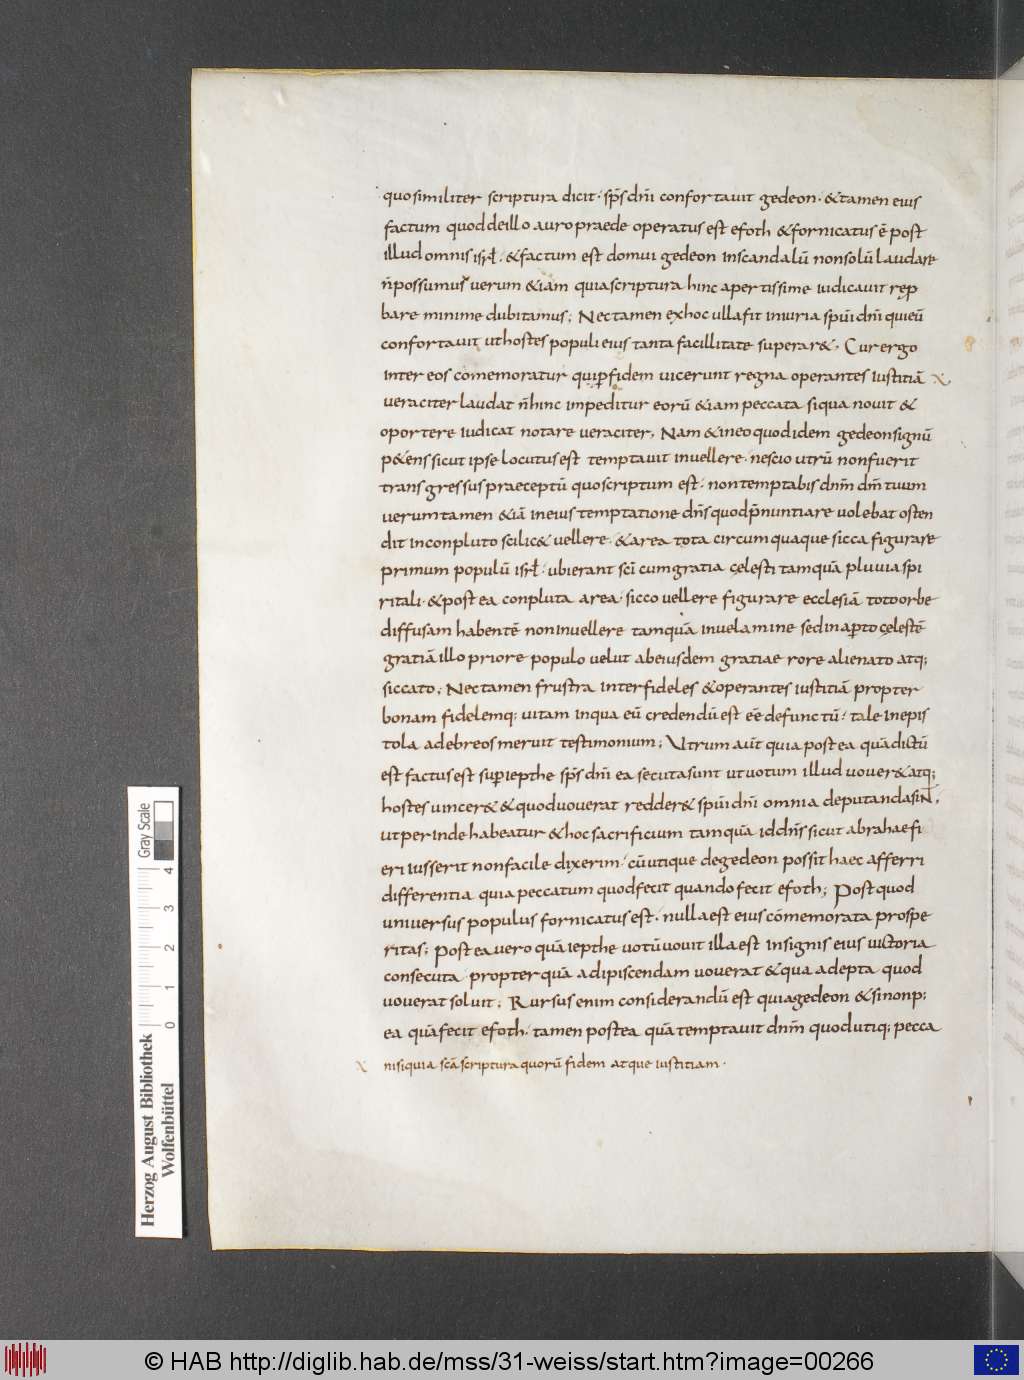 quosimiliter scriptura dicit · sp̄s dn̄i confortauit gedeon · &tamen eius
factum quoddeillo auro praede operatus est efoth &fornicatus ē post
illud omnis isrł · &factum est domui gedeon inscandalū nonsolū laudare
n̄possumus verum &iam quiascriptura hinc apertissime iudicauit rep
bare minime dubitamus ; Nectamen exhoc ullafit iniuria spūi dn̄i quieū
confortauit uthostes populi eius tanta facillitate superar& . Cur ergo
inter eos cōmemoratur quip̱fidem uicerunt regna operantes iustitiā X
ueraciter laudat n̄hinc impeditur eorū &iam peccata siqua nouit &
oportere iudicat notare ueraciter . Nam &ineo quodidem gedeonsignū
p&ens sicut ipse locutus est temptauit inuellere · nescio utrū nonfuerit
transgressus praeceptū quoscriptum est · nontemptabis dn̄m dm̄ tuum
uerumtamen &iā ineius temptatione dn̄s quodp̄nuntiare uolebat osten
dit inconpluto scilic& uellere · &area tota circumquaque sicca figurare
primum populū isrł · ubierant sc̄i cumgratia cęlesti tamquā pluuia spi
ritali · &postea conpluta area · sicco uellere figurare ecclesiā totoorbe
diffusam habentē noninuellere tamquā inuelamine sedinap̱to cęlestē
gratiā illo priore populo uelut abeiusdem gratiae rore alienato atq;
siccato ; Nectamen frustra interfideles &operantes iustitiā propter
bonam fidelemq; uitam inqua eū credendū est eē defunctū · tale inepis
tola adebreos meruit testimonium ; Utrum aūt quia postea quādictū
est factus est sup̱iepthe sp̄s dn̄i ea secutasunt utuotum illud uouer& atq;
hostes uincer& &quoduouerat redder& spūi dn̄i omnia deputandasiN̄ ,
utperinde habeatur &hoc sacrificium tamquā id dn̄s sicut abrahae fi
eri iusserit nonfacile dixerim · cūutique degedeon possit haec afferri
differentia quia peccatum quodfecit quando fecit efoth ; Post quod
uniuersus populus fornicatus est · nulla est eius cōmemorata prospe
ritas ; Postea uero quā iepthe uotū uouit illa est insignis eius uictoria
consecuta · propterquā adipiscendam uouerat &qua adepta quod
uouerat soluit ; Rursus enim considerandū est quiagedeon &sinonp;
ea quāfecit efoth · tamen postea quā temptauit dn̄m quodutiq; pecca
X nisiquia sc̄a scriptura quorū fidem atque iustitiam ·
Gray Scale
4 3 2 1 0
Herzog August Bibliothek
Wolfenbüttel
© HAB http://diglib.hab.de/mss/31-weiss/start.htm?image=00266